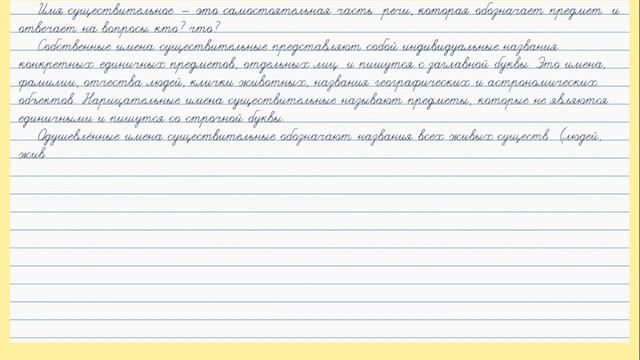 Имя существительное – это самостоятельная часть речи, которая обозначает предмет и
отвечает на вопросы кто? что?
Собственные имена существительные представляют собой индивидуальные названия
конкретных единичных предметов, отдельных лиц и пишутся с заглавной буквы. Это имена,
фамилии, отчества людей, клички животных, названия географических и астрономических
объектов. Нарицательные имена существительные называют предметы, которые не являются
единичными и пишутся со строчной буквы.
Одушевлённые имена существительные обозначают названия всех живых существ (людей,
жив